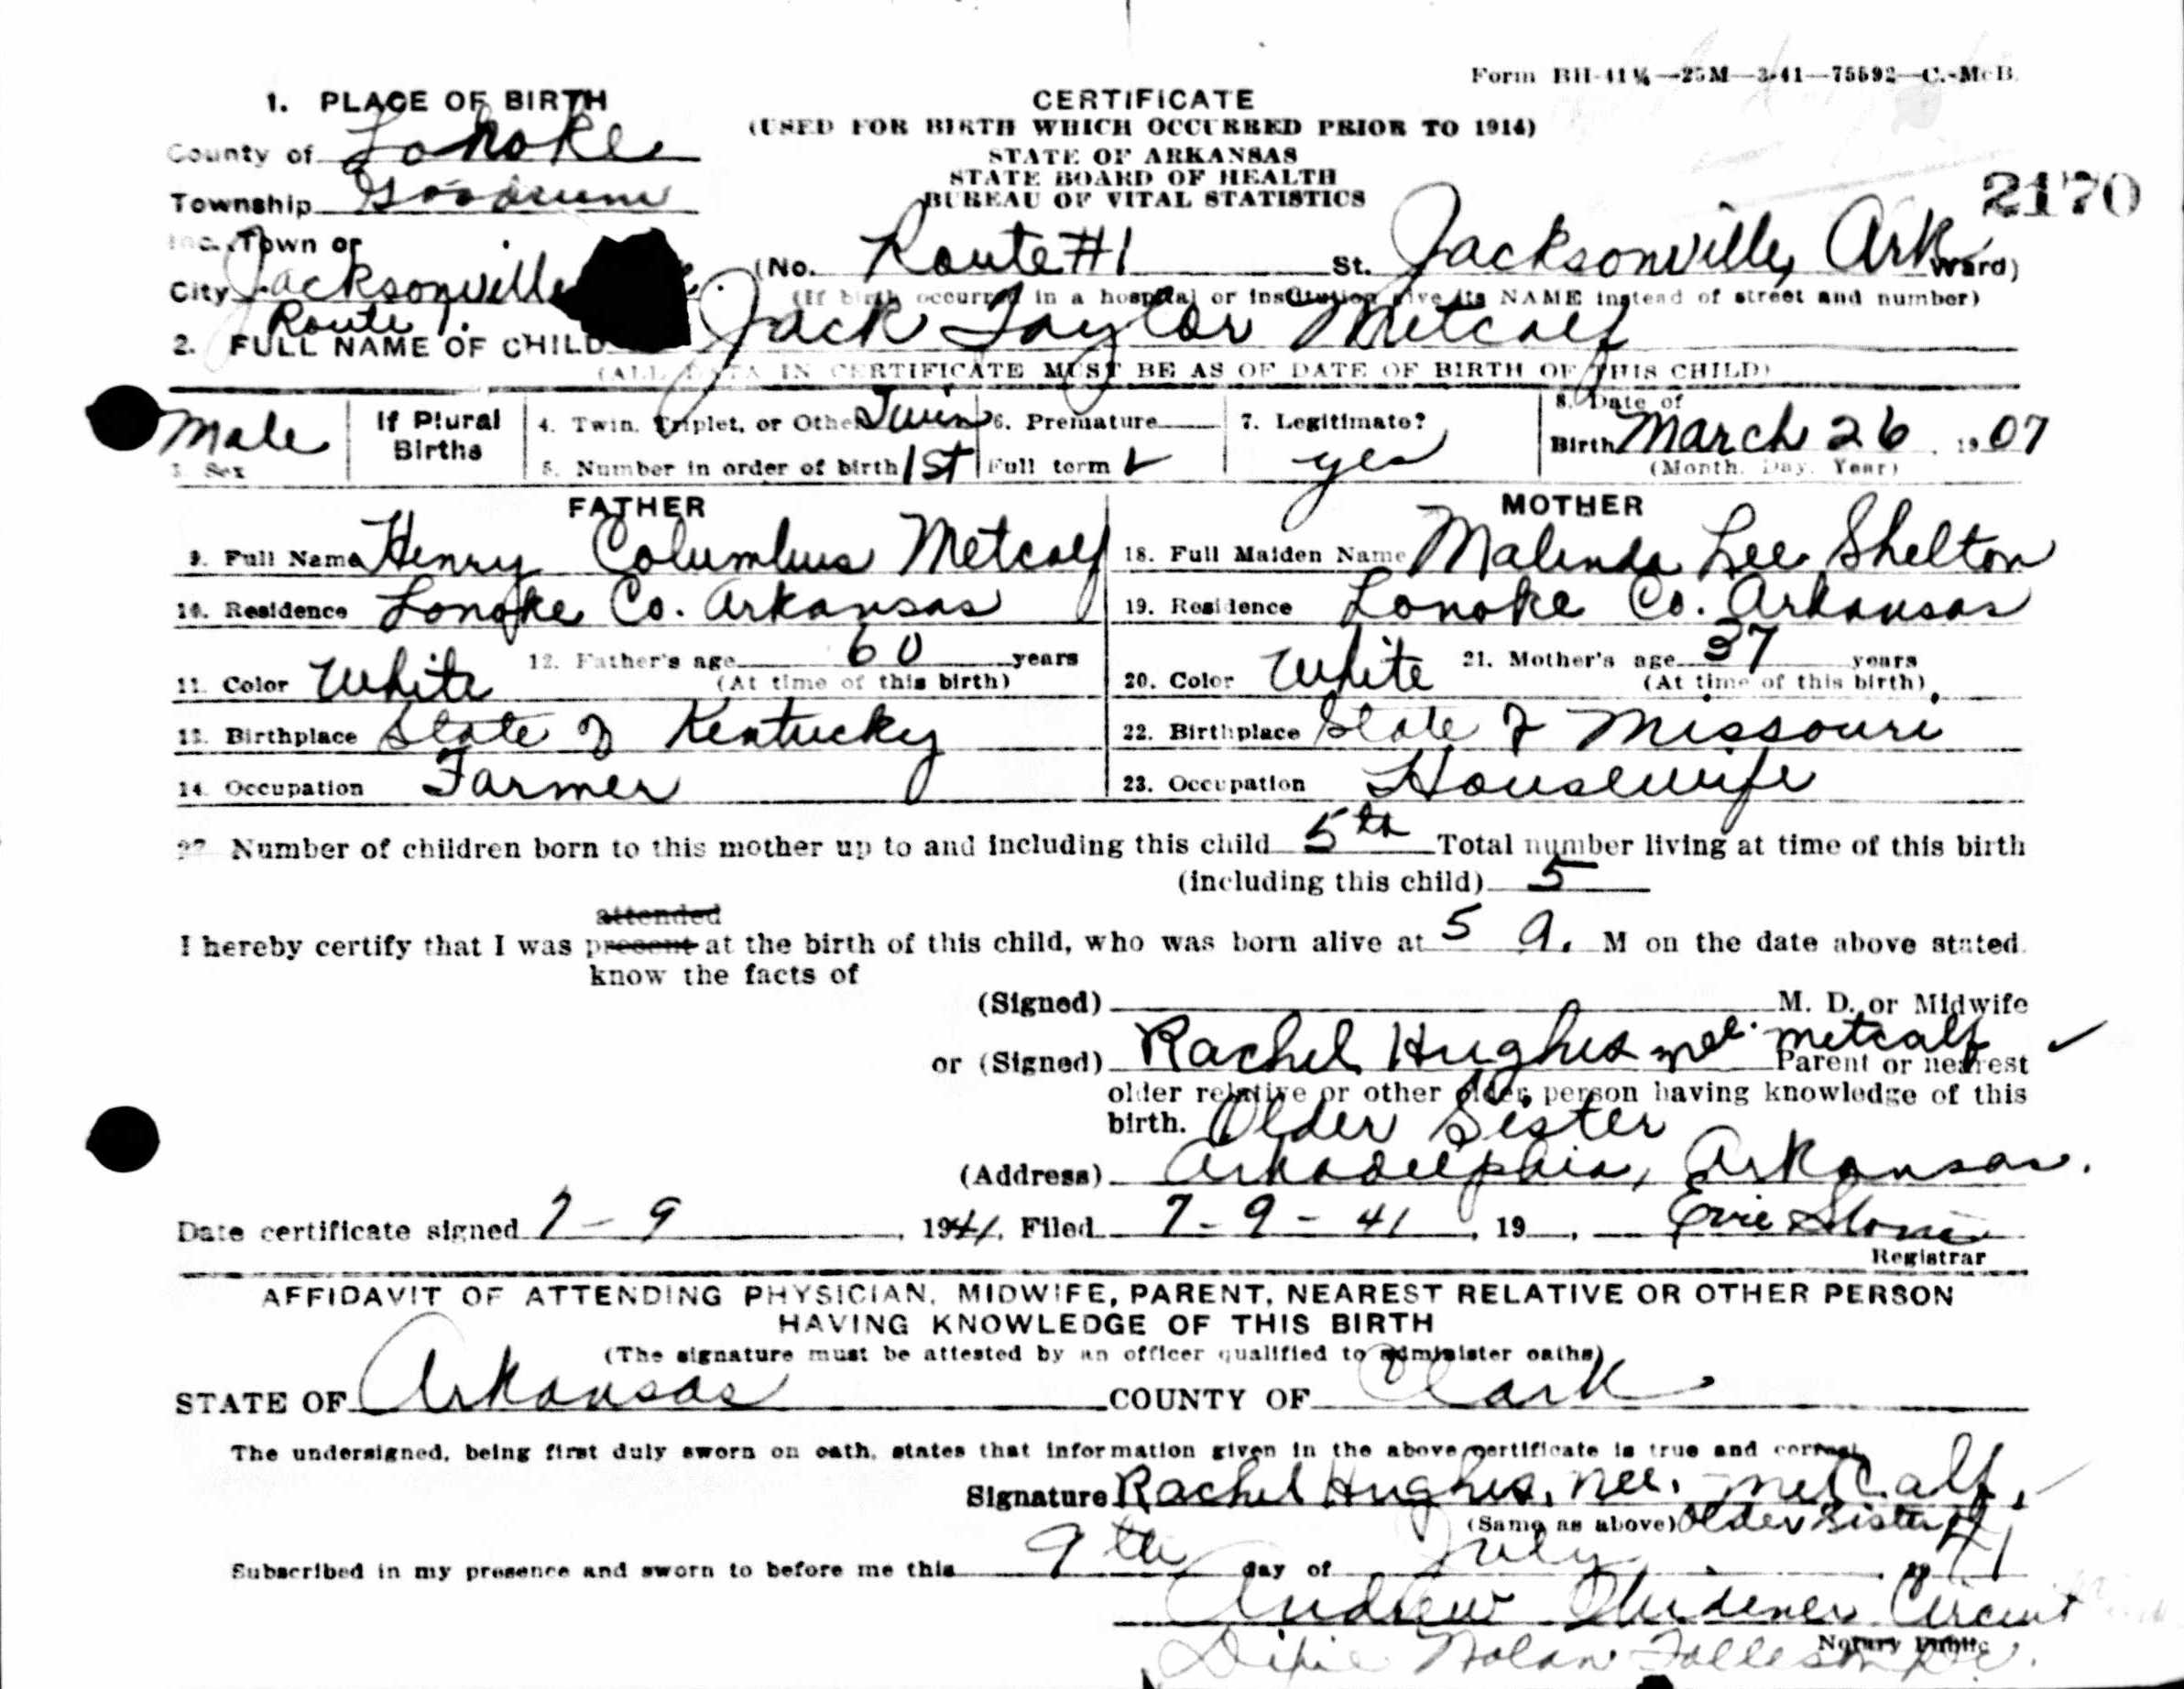 Form BH-41¼—25M—3-41—75592—C.-McB.
1. PLACE OF BIRTH
CERTIFICATE
(USED FOR BIRTH WHICH OCCURRED PRIOR TO 1914)
County of Lonoke
STATE OF ARKANSAS
STATE BOARD OF HEALTH
Township Goodrum
BUREAU OF VITAL STATISTICS
2170
Inc. Town or
City Jacksonville (No. Route #1 St. Jacksonville, Ark. Ward)
(If birth occurred in a hospital or institution give its NAME instead of street and number)
Route 1.
2. FULL NAME OF CHILD Jack Taylor Metcalf
(ALL DATA IN CERTIFICATE MUST BE AS OF DATE OF BIRTH OF THIS CHILD)
Male
3. Sex
If Plural Births
4. Twin, Triplet, or Other Twin
5. Number in order of birth 1st
6. Premature
Full term ✓
7. Legitimate?
yes
8. Date of
Birth March 26, 1907
(Month, Day, Year)
FATHER
9. Full Name Henry Columbus Metcalf
10. Residence Lonoke Co. Arkansas
11. Color White 12. Father's age 60 years
(At time of this birth)
13. Birthplace State of Kentucky
14. Occupation Farmer
MOTHER
18. Full Maiden Name Malinda Lee Shelton
19. Residence Lonoke Co. Arkansas
20. Color White 21. Mother's age 37 years
(At time of this birth)
22. Birthplace State of Missouri
23. Occupation Housewife
27 Number of children born to this mother up to and including this child 5th Total number living at time of this birth
(including this child) 5
attended
I hereby certify that I was present at the birth of this child, who was born alive at 5 A. M on the date above stated.
know the facts of
(Signed) M. D. or Midwife
or (Signed) Rachel Hughes nee. Metcalf ✓ Parent or nearest
older relative or other older person having knowledge of this
birth. Older Sister
(Address) Arkadelphia, Arkansas.
Date certificate signed 7-9, 1941. Filed 7-9-41, 19 Evie
Registrar
AFFIDAVIT OF ATTENDING PHYSICIAN, MIDWIFE, PARENT, NEAREST RELATIVE OR OTHER PERSON
HAVING KNOWLEDGE OF THIS BIRTH
(The signature must be attested by an officer qualified to administer oaths)
STATE OF Arkansas COUNTY OF Clark
The undersigned, being first duly sworn on oath, states that information given in the above certificate is true and correct.
Signature Rachel Hughes, nee. Metcalf,
(Same as above) Older Sister
Subscribed in my presence and sworn to before me this 9th day of July, 1941
Andrew Circuit
Notary Public
Dixie Nolan